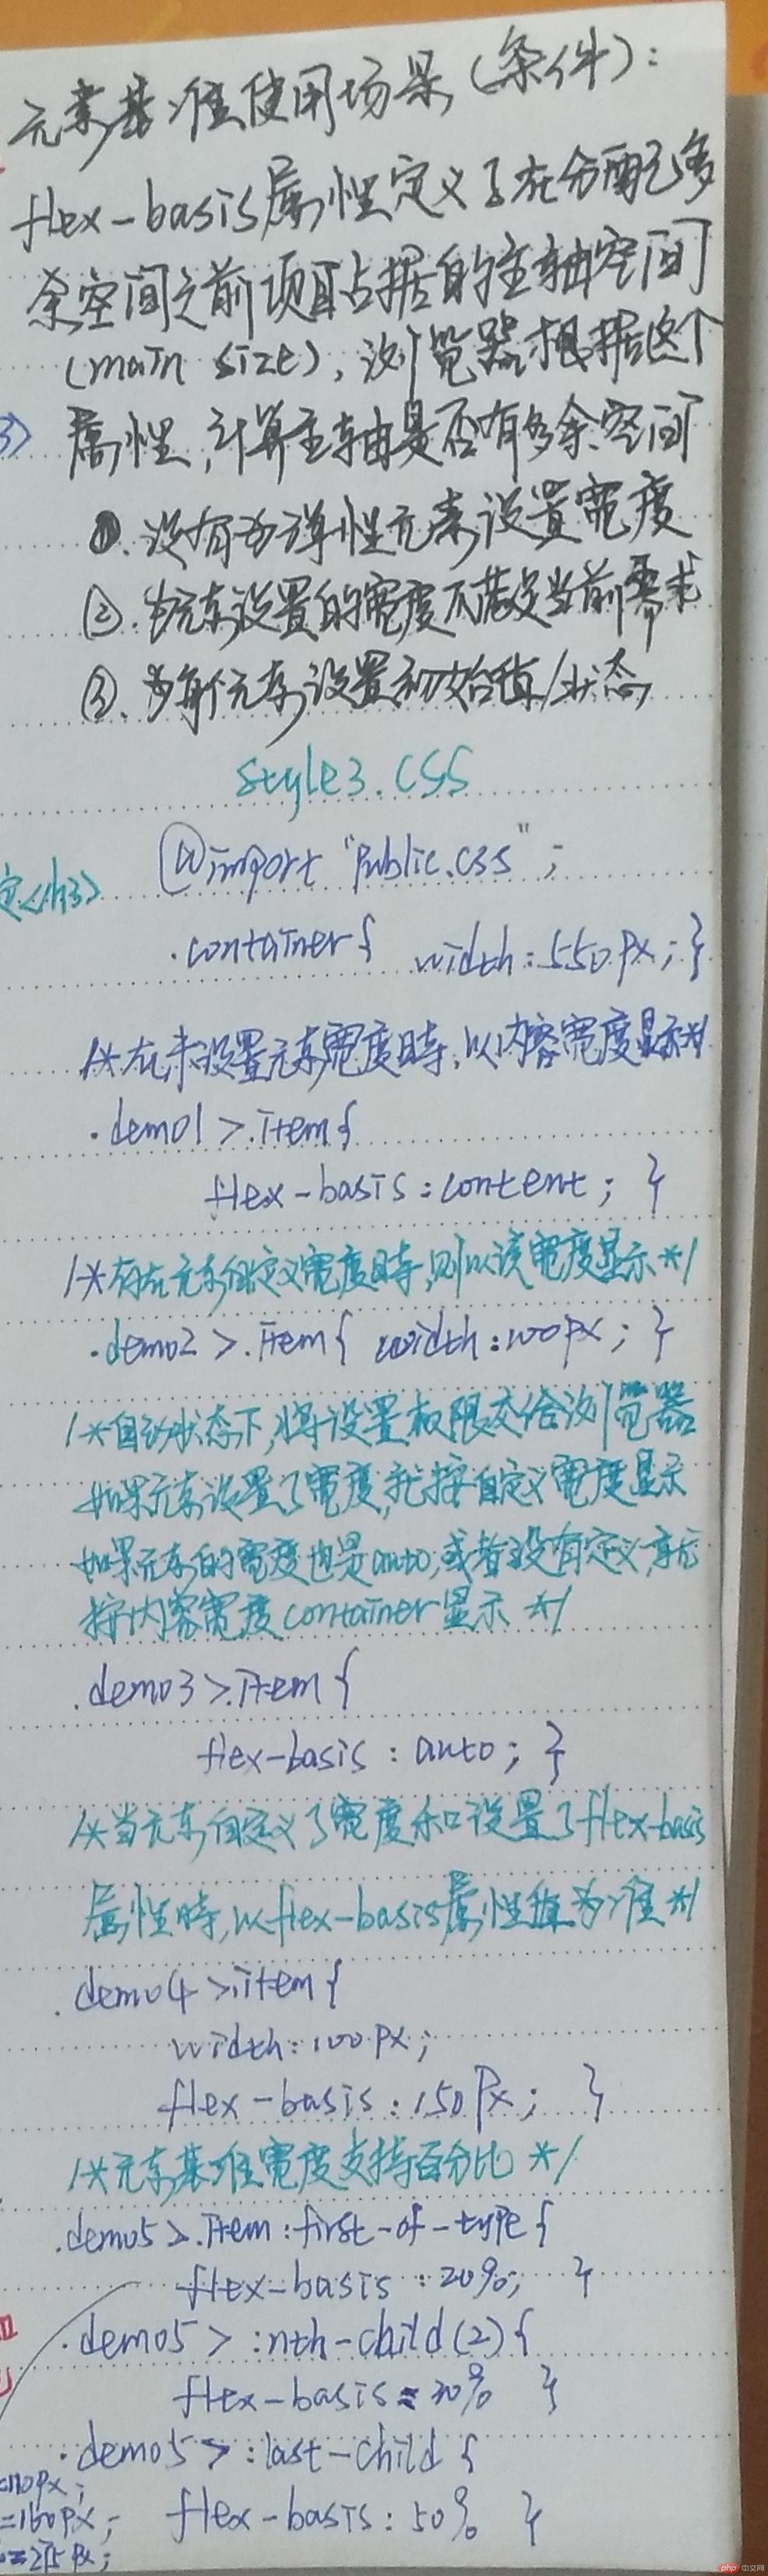 元素基准使用场景(条件):
flex-basis属性定义了在分配多
余空间之前项目占据的主轴空间
(main size),浏览器根据这个
3)
属性,计算主轴是否有多余空间
①.没有为弹性元素设置宽度
②.为元素设置的宽度不满足当前需求
③.为每个元素设置初始值/状态
style3.css
@import "public.css";
<h3>
.container{ width:550px;}
/*在未设置元素宽度时,以内容宽度显示*/
.demo1>.item{
flex-basis:content; }
/*存在元素自定义宽度时,则以该宽度显示*/
.demo2>.item{ width:100px; }
/*自动状态下,将设置权限交给浏览器
如果元素设置了宽度,就按自定义宽度显示
如果元素的宽度也是auto,或者没有定义,就
按内容宽度container显示 */
.demo3>.item{
flex-basis:auto; }
/*当元素自定义了宽度和设置了flex-basis
属性时,以flex-basis属性值为准*/
.demo4>.item{
width:100px;
flex-basis:150px; }
/*元素基准宽度支持百分比 */
.demo5>.item:first-of-type{
flex-basis:20%; }
.demo5> :nth-child(2){
flex-basis:30% }
.demo5> :last-child{
=110px;
=160px;
flex-basis:50% }
=275px;
php 中文网